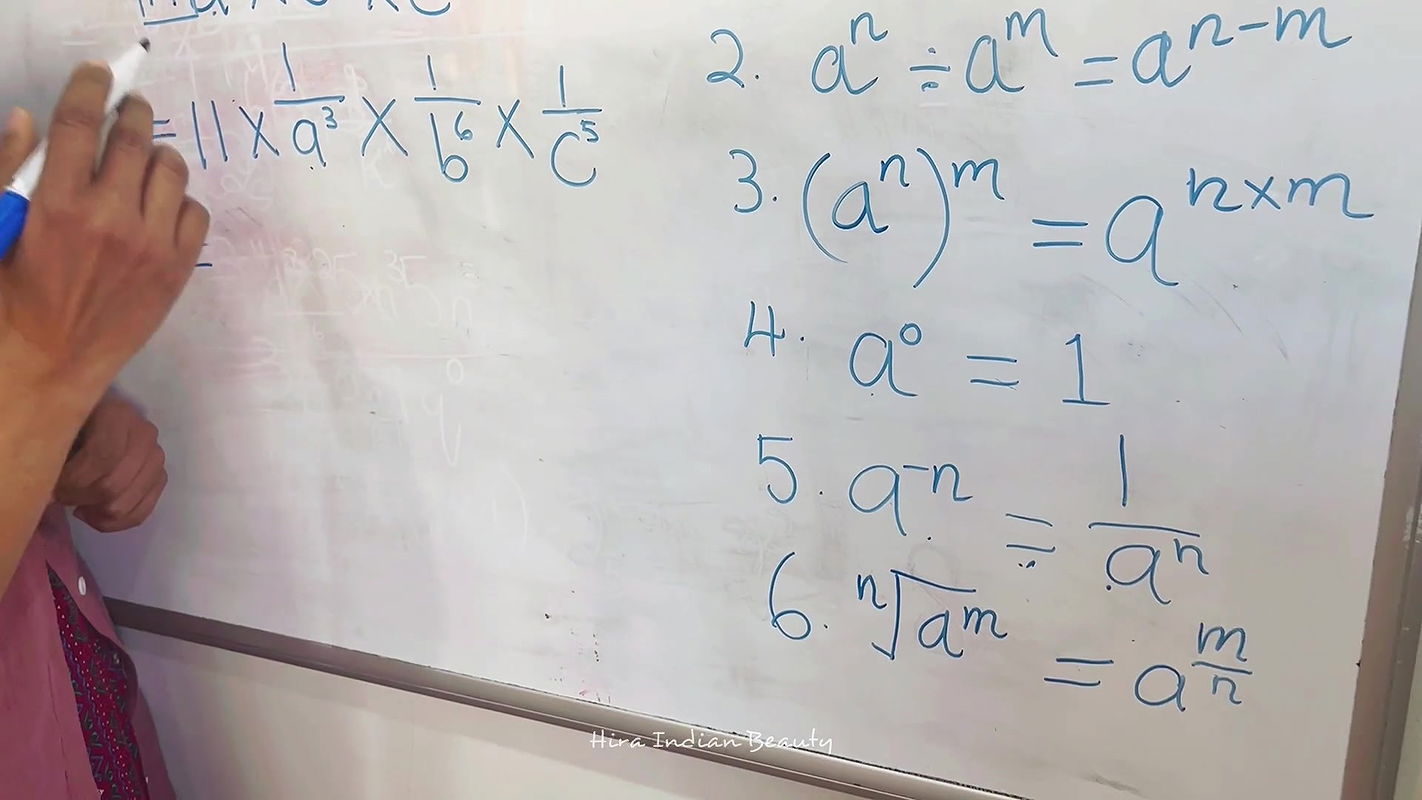 = 11 × 1/a³ × 1/b⁶ × 1/c⁵
=
2. aⁿ ÷ aᵐ = aⁿ⁻ᵐ
3. (aⁿ)ᵐ = aⁿˣᵐ
4. a⁰ = 1
5. a⁻ⁿ = 1/aⁿ
6. ⁿ√aᵐ = a^(m/n)
Hira Indian Beauty